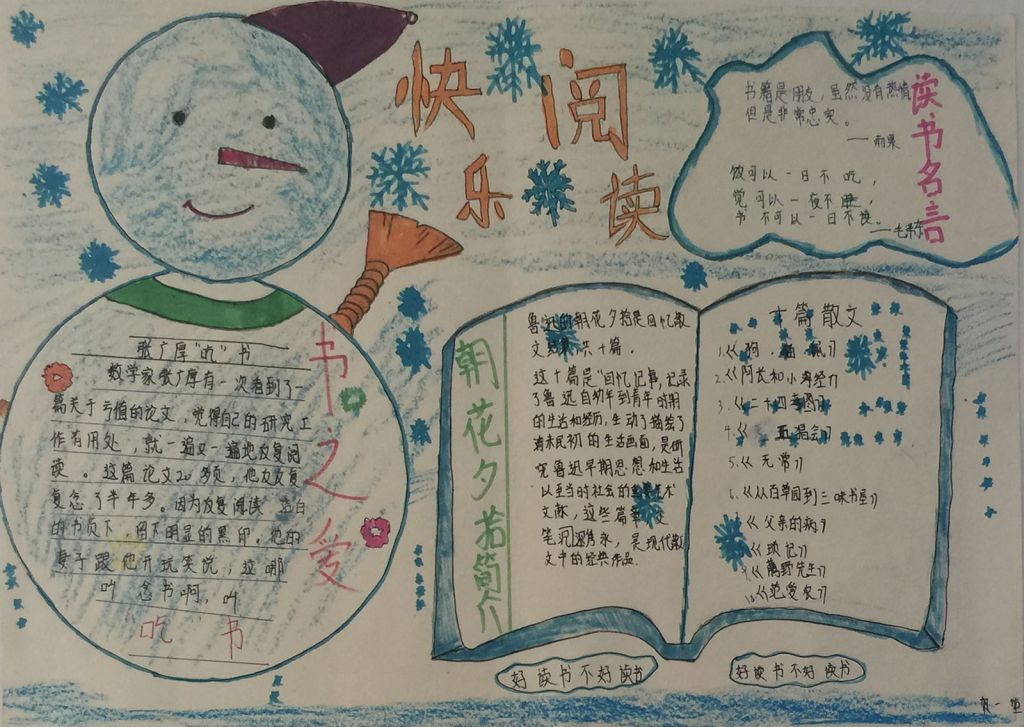 快乐阅读
读书名言
书籍是朋友，虽然没有热情
但是非常忠实。
——雨果
饭可以一日不吃，
觉可以一夜不睡，
书不可以一日不读。
——毛泽东
书之爱
张广厚“吃”书
数学家张广厚有一次看到了一
篇关于亏值的论文，觉得自己的研究工
作有用处，就一遍又一遍地反复阅
读。这篇论文20多页，他反反复
复念了半年多。因为反复阅读
的书页下，留下明显的黑印。他的
妻子跟他开玩笑说，这哪
叫念书啊，叫
吃书
朝花夕拾简介
鲁迅的朝花夕拾是回忆散
文集，共十篇。
这十篇是“回忆记事，记录
了鲁迅自幼年到青年时期
的生活和经历，生动了描装了
清末民初的生活画面，是研
究鲁迅早期思想和生活
以至当时社会的重要艺术
文献，这些篇章文
笔沉深隽永，是现代散
文中的经典作品。
十篇散文
1.《狗·猫·鼠》
2.《阿长和小海经》
3.《二十四孝图》
4.《五猖会》
5.《无常》
6.《从百草园到三味书屋》
7.《父亲的病》
8.《琐记》
9.《藤野先生》
10.《范爱农》
好读书不好读书
好读书不好读书